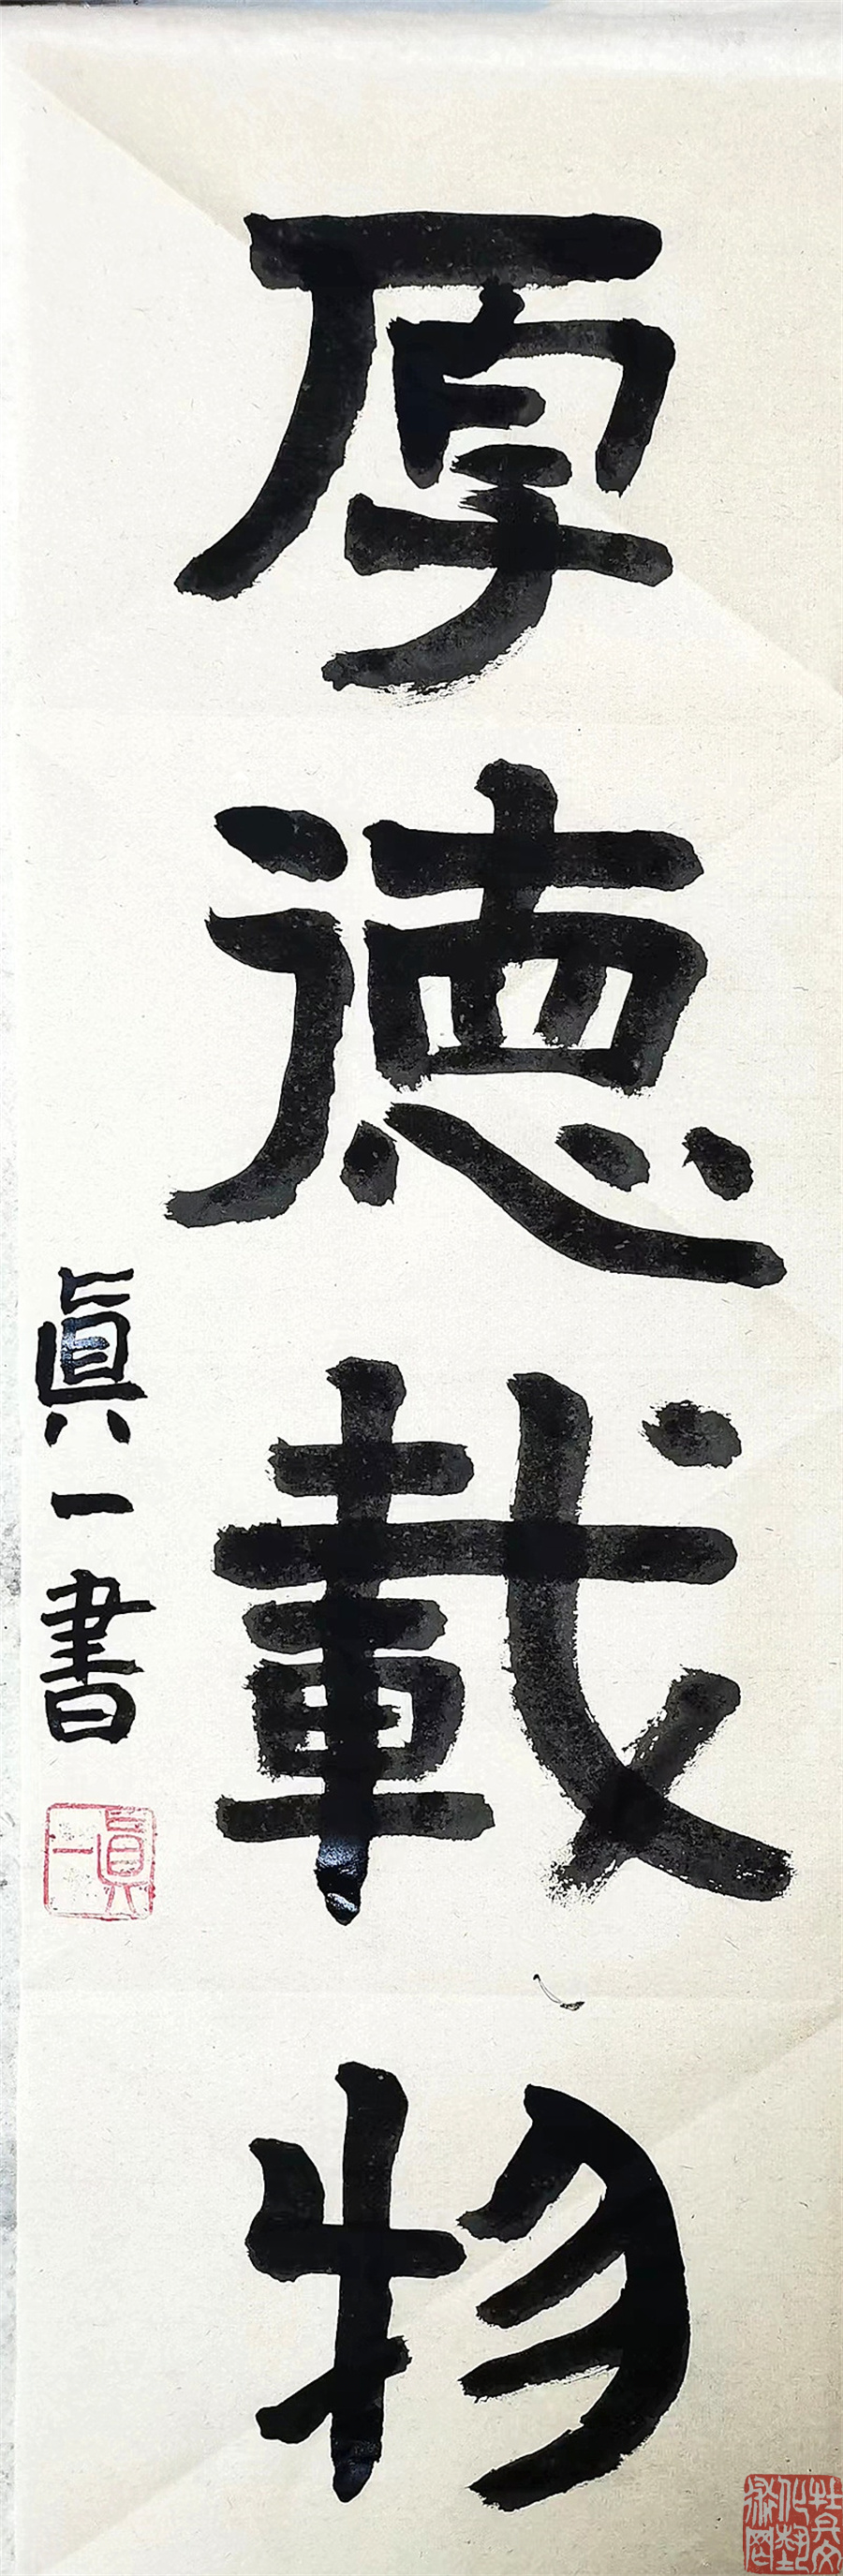 厚德載物
眞一書
眞一